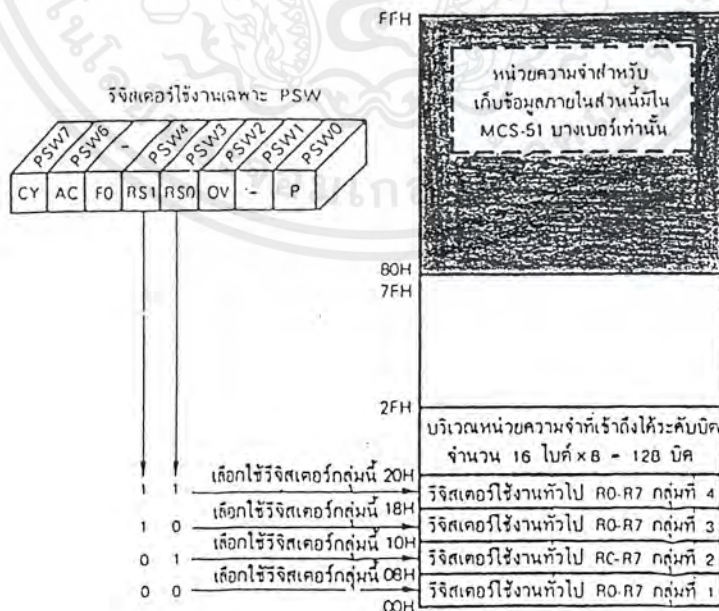 FFH
หน่วยความจำสำหรับ
เก็บข้อมูลภายในส่วนนี้มีใน
MCS-51 บางเบอร์เท่านั้น
รีจิสเตอร์ใช้งานเฉพาะ PSW
PSW7 PSW6 - PSW4 PSW3 PSW2 PSW1 PSW0
CY AC F0 RS1 RS0 OV - P
80H
7FH
2FH
บริเวณหน่วยความจำที่เข้าถึงได้ระดับบิต
จำนวน 16 ไบต์ x 8 = 128 บิต
1 1 เลือกใช้รีจิสเตอร์กลุ่มนี้ 20H
รีจิสเตอร์ใช้งานทั่วไป R0-R7 กลุ่มที่ 4
1 0 เลือกใช้รีจิสเตอร์กลุ่มนี้ 18H
รีจิสเตอร์ใช้งานทั่วไป R0-R7 กลุ่มที่ 3
0 1 เลือกใช้รีจิสเตอร์กลุ่มนี้ 10H
รีจิสเตอร์ใช้งานทั่วไป RC-R7 กลุ่มที่ 2
0 0 เลือกใช้รีจิสเตอร์กลุ่มนี้ 08H
รีจิสเตอร์ใช้งานทั่วไป R0-R7 กลุ่มที่ 1
00H